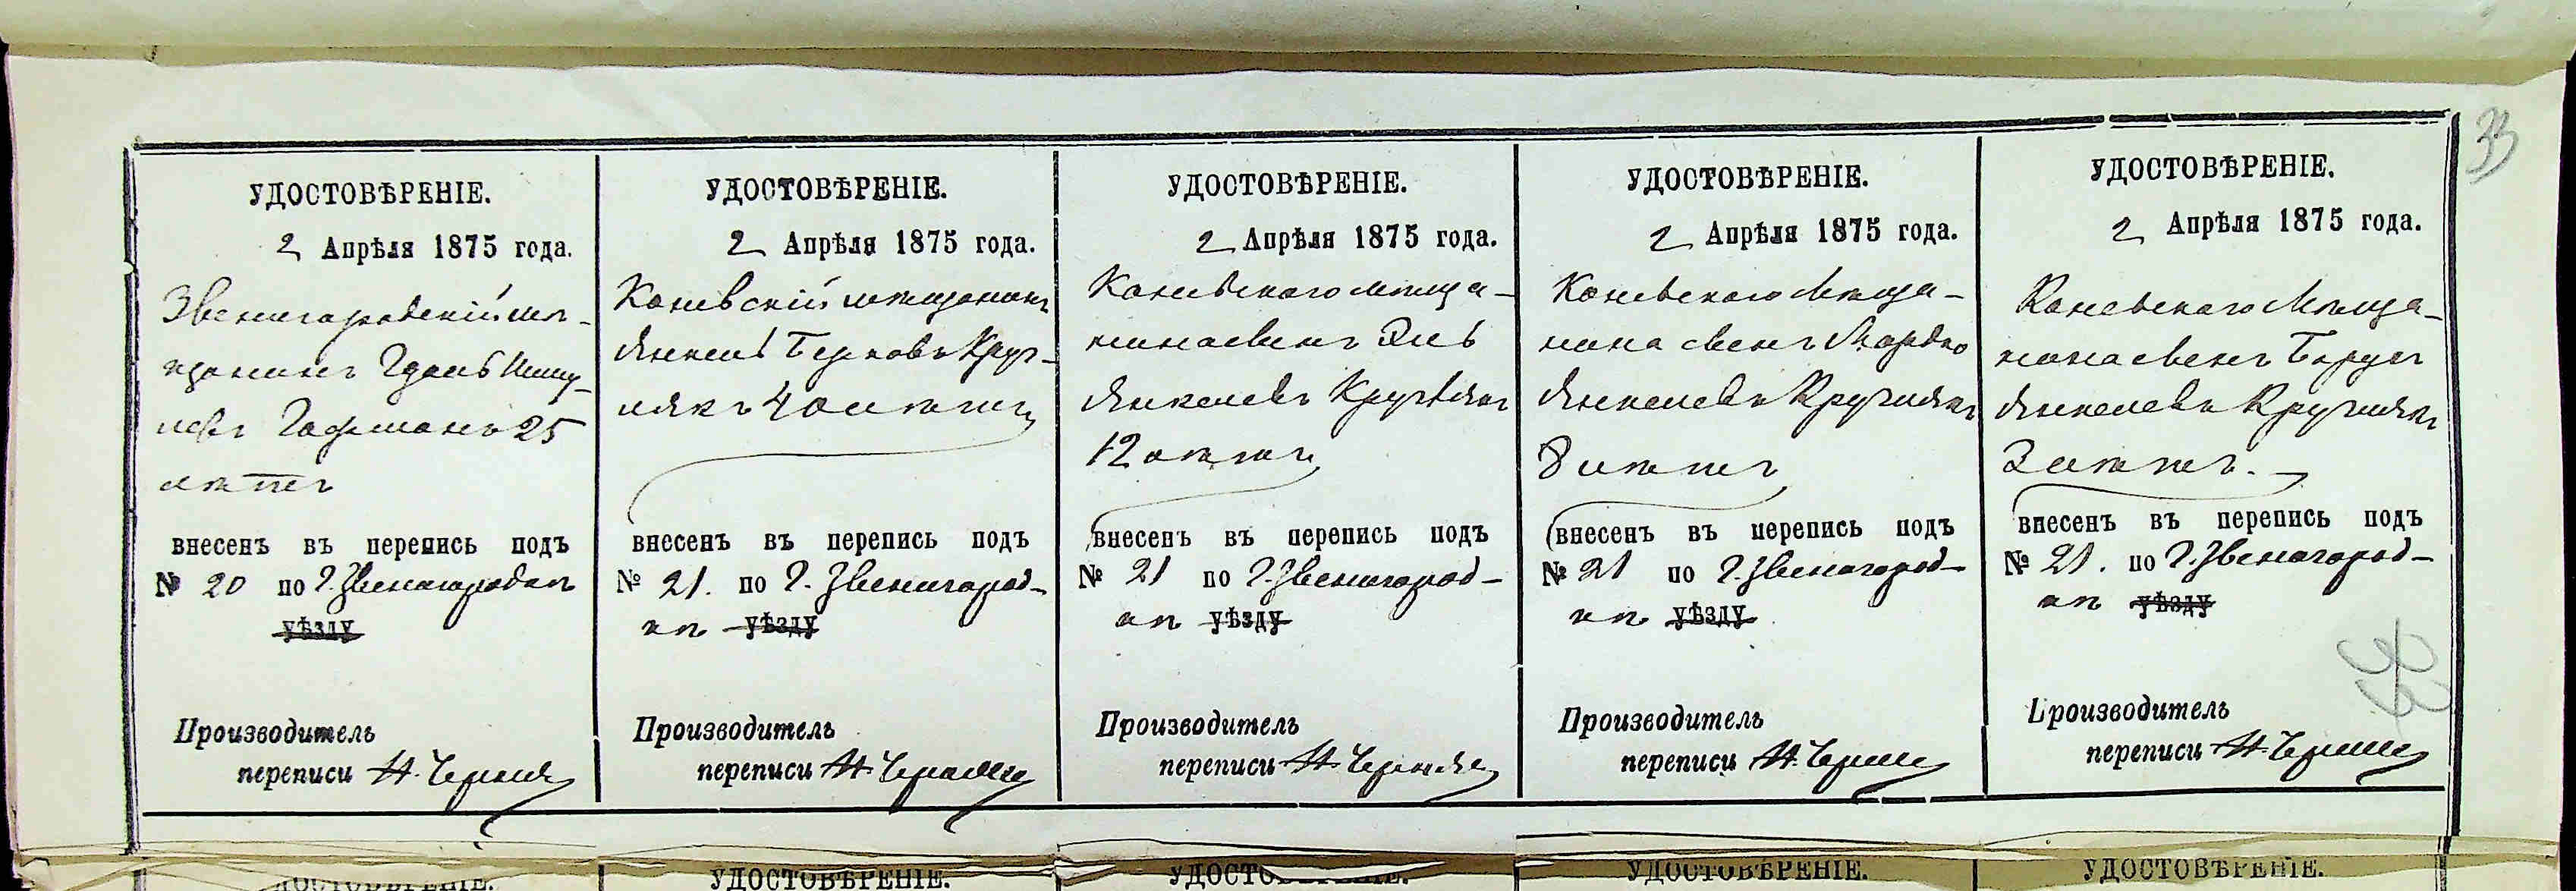 33
УДОСТОВѢРЕНІЕ.
2 Апрѣля 1875 года.
Звенигородскій мѣ-
щанинъ
Гофманъ 25
лѣтъ
внесенъ въ перепись подъ
№ 20 по Г. Звенигородкѣ
уѣзду
Производитель
переписи Н.
УДОСТОВѢРЕНІЕ.
2 Апрѣля 1875 года.
Каневскій мѣщанинъ
Янкель Берковъ Круг-
лякъ 40 лѣтъ
внесенъ въ перепись подъ
№ 21. по Г. Звенигород-
кѣ уѣзду
Производитель
переписи Н.
УДОСТОВѢРЕНІЕ.
2 Апрѣля 1875 года.
Каневскаго мѣща-
нина сынъ Эль
Янкелевъ Круглякъ
12 лѣтъ
внесенъ въ перепись подъ
№ 21 по Г. Звенигород-
кѣ уѣзду
Производитель
переписи Н.
УДОСТОВѢРЕНІЕ.
2 Апрѣля 1875 года.
Каневскаго Мѣща-
нина сынъ Мордко
Янкелевъ Круглякъ
8 лѣтъ
внесенъ въ перепись подъ
№ 21 по Г. Звенигород-
кѣ уѣзду
Производитель
переписи Н.
УДОСТОВѢРЕНІЕ.
2 Апрѣля 1875 года.
Каневскаго Мѣща-
нина сынъ Борух
Янкелевъ Круглякъ
3 лѣтъ.
внесенъ въ перепись подъ
№ 21. по Г. Звенигород-
кѣ уѣзду
Производитель
переписи Н.
УДОСТОВѢРЕНІЕ.
УДОСТОВѢРЕНІЕ.
УДОСТОВѢРЕНІЕ.
УДОСТОВѢРЕНІЕ.
УДОСТОВѢРЕНІЕ.